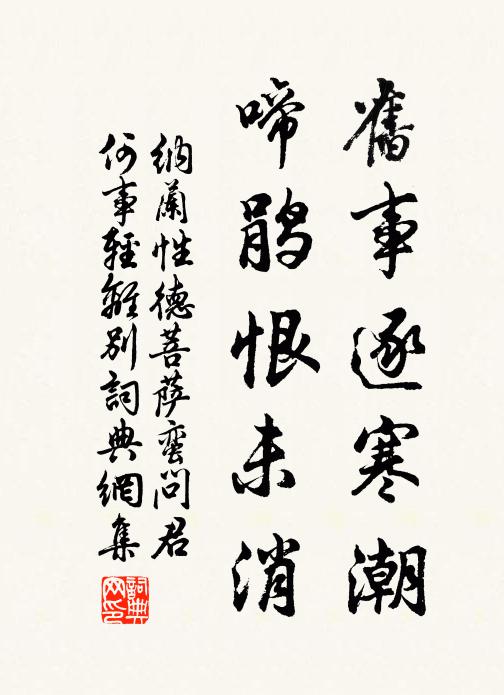 舊事逐寒潮
啼鵑恨未消
納蘭性德菩薩蠻問君
何事輕離別詞典網集
詞典
网印